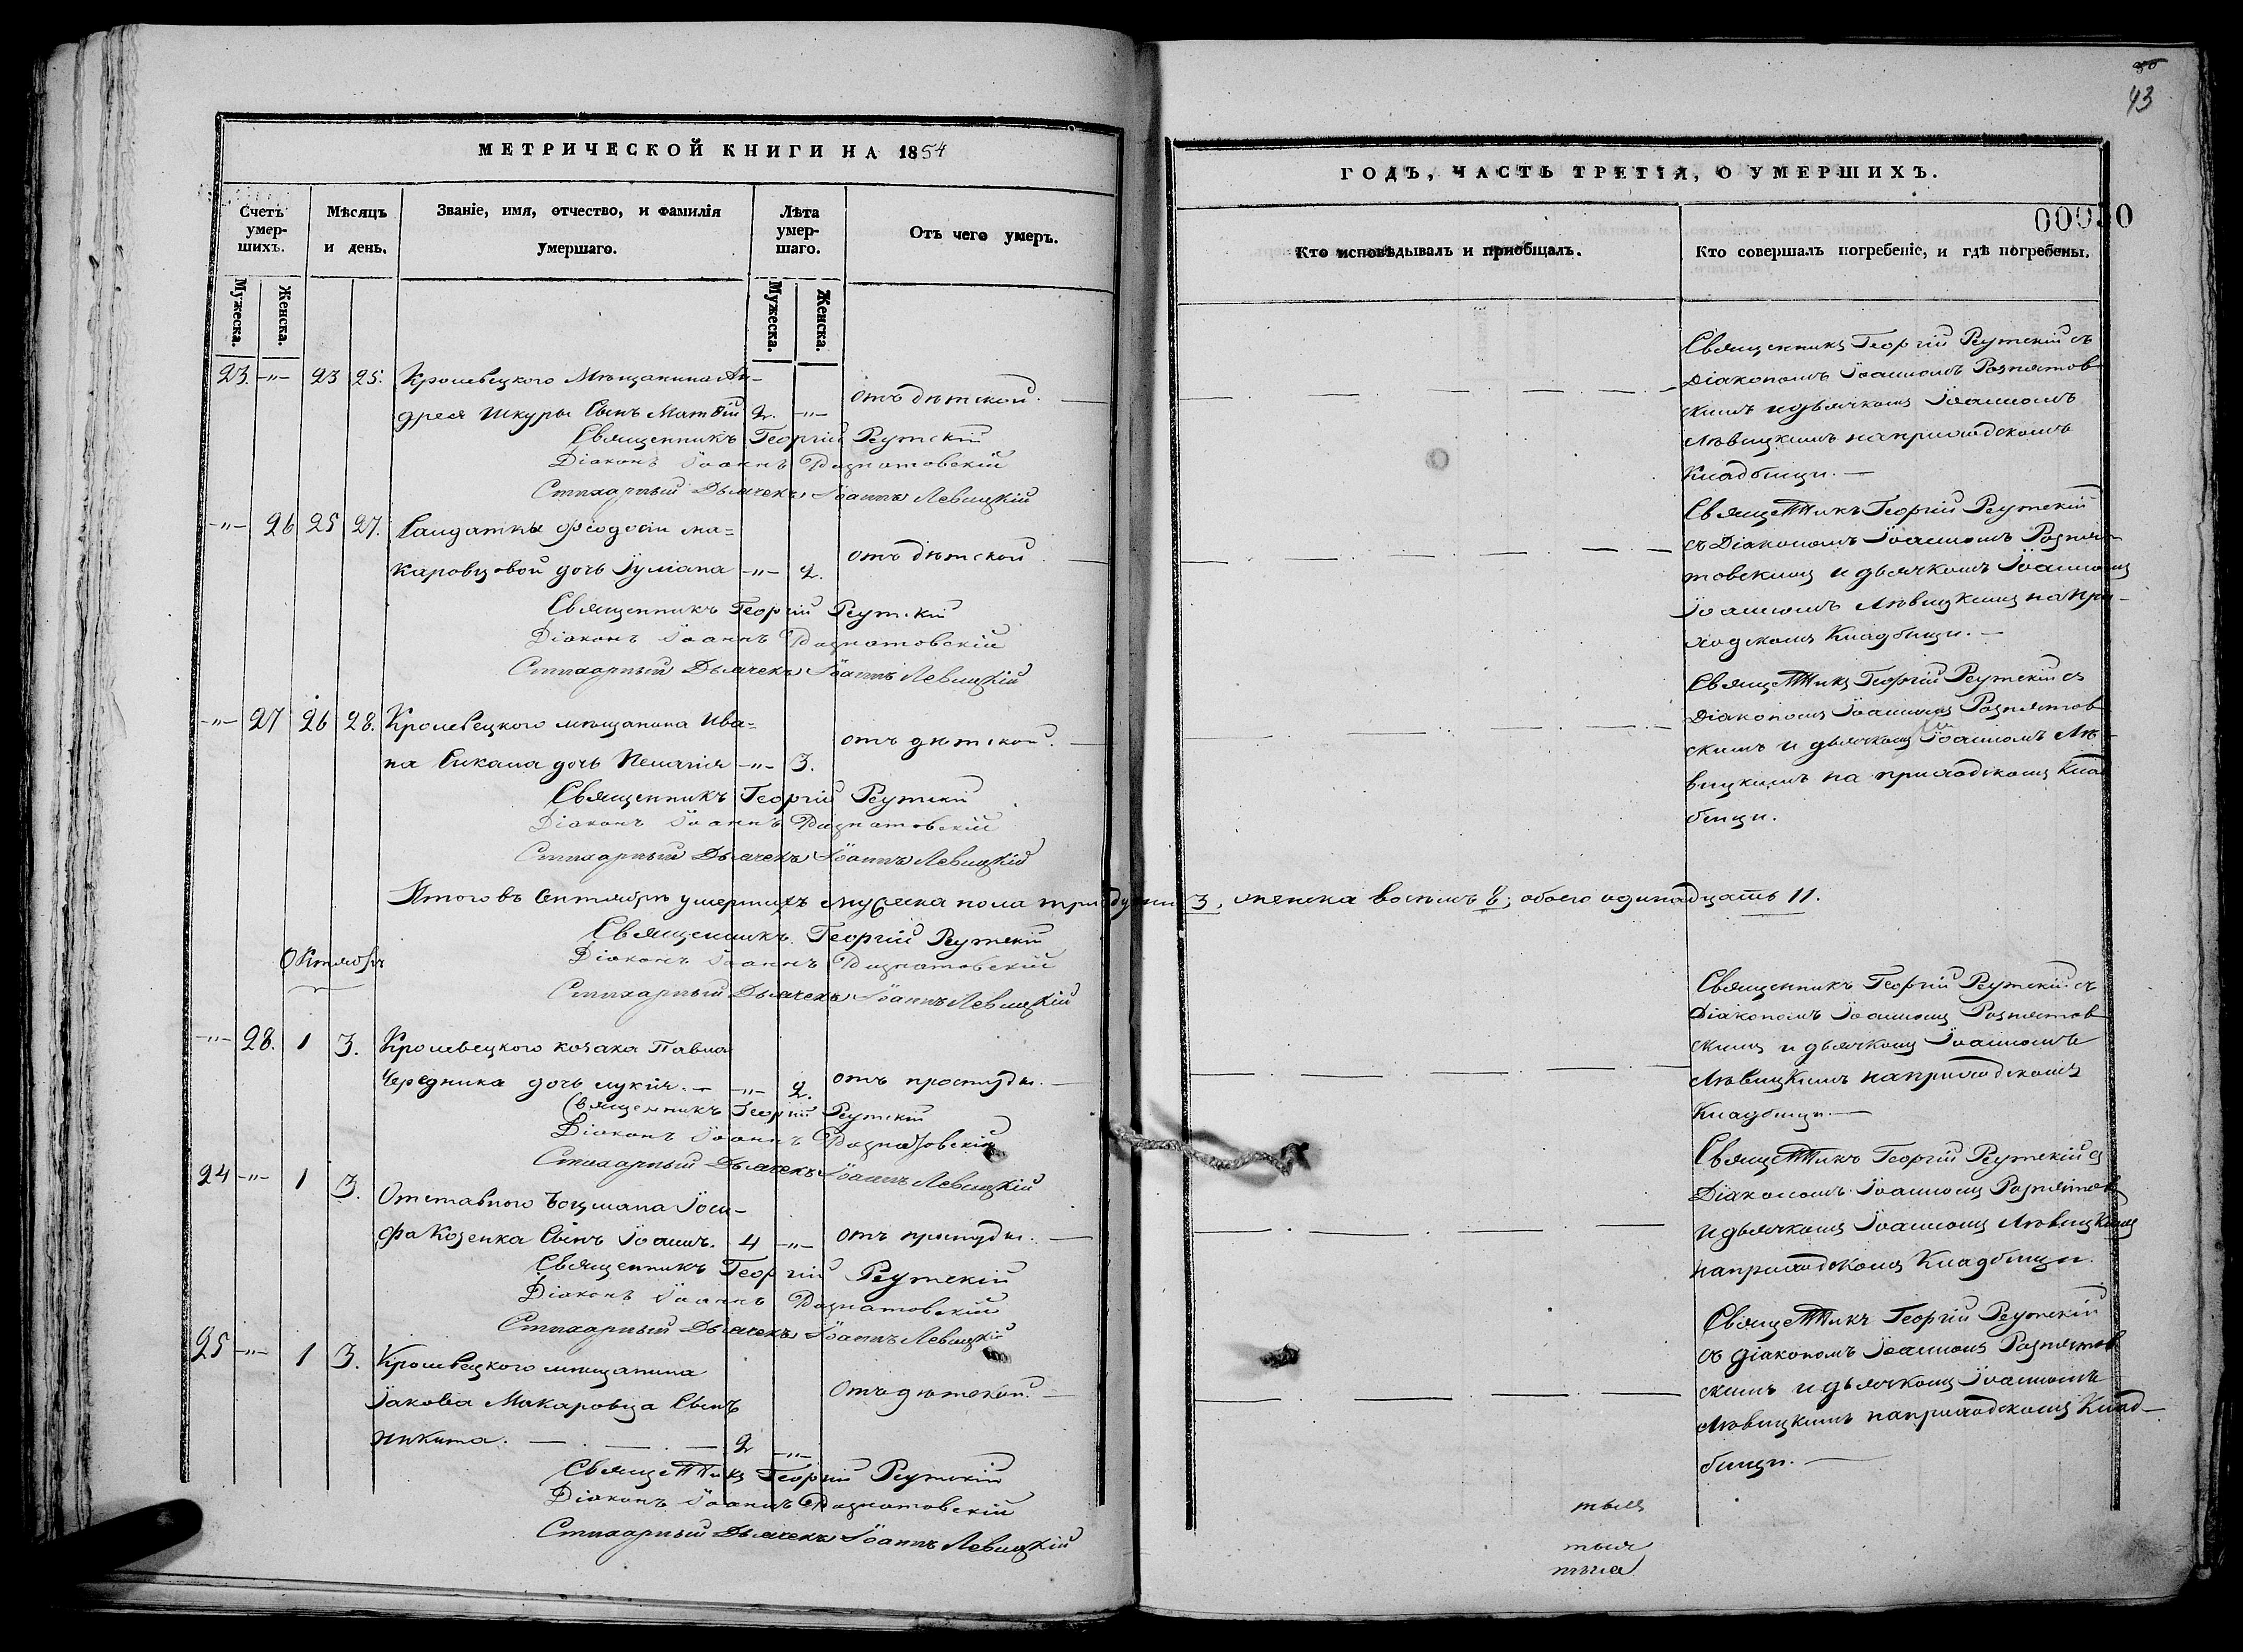 43
МЕТРИЧЕСКОЙ КНИГИ НА 1854
ГОДЪ, ЧАСТЬ ТРЕТІЯ, О УМЕРШИХЪ.
Счетъ умершихъ.
Мужеска.
Женска.
Мѣсяцъ и день.
Званіе, имя, отчество, и фамилія умершаго.
Лѣта умершаго.
Мужеска.
Женска.
Отъ чего умеръ.
Кто исповѣдывалъ и приобщалъ.
Кто совершалъ погребеніе, и гдѣ погребены.
23. -"- 23 25. Кролевецкого Мѣщанина Ан-
дрея Шкуры Сынъ Матѳій 2. -"- отъ дѣтской.
Священникъ Георгій Реутскій
Діаконъ Іоаннъ Рознатовскій
Стихарный Дьячекъ Іоаннъ Левицкій
Священникъ Георгій Реутскій съ
Діакономъ Іоанномъ Рознятов
скимъ и дьячкомъ Іоанномъ
Лѣвицкимъ на приходскомъ
Кладбищи.
-"- 26 25 27. Салдатки Феодосіи Ма=
каровцовой дочь Іуліана -"- 2. отъ дѣтской
Священникъ Георгій Реутскій
Діаконъ Іоаннъ Рознатовскій
Стихарный Дьячекъ Іоаннъ Левицкій
Священникъ Георгій Реутскій
съ Діакономъ Іоанномъ Розня-
товскимъ и дьячкомъ Іоанномъ
Іоанномъ Лѣвицкимъ на при-
ходскомъ Кладбищи.
-"- 27 26 28. Кролевецкого мѣщанина Ива=
на Сикала дочь Пелагія -"- 3. отъ дѣтской.
Священникъ Георгій Реутскій
Діаконъ Іоаннъ Рознатовскій
Стихарный Дьячекъ Іоаннъ Левицкій
Священникъ Георгій Реутскій съ
Діакономъ Іоанномъ Рознятов
скимъ и дьячкомъ Іоанномъ Лѣ-
вицкимъ на приходскомъ Клад
бищи.
Итого въ Сентябрѣ умершихъ мужеска пола три души 3, женска восемь 8; обоего одинадцать 11.
Священникъ Георгій Реутскій
Діаконъ Іоаннъ Рознатовскій
Стихарный Дьячекъ Іоаннъ Левицкій
Октябрь
-"- 28. 1 3. Кролевецкого козака Павла
Чередника дочь Лукія. -"- 2. отъ простуды.
Священникъ Георгій Реутскій
Діаконъ Іоаннъ Рознатовскій
Стихарный Дьячекъ Іоаннъ Левицкій
Священникъ Георгій Реутскій съ
Діакономъ Іоанномъ Рознятов
скимъ и дьячкомъ Іоанномъ
Лѣвицкимъ на приходскомъ
Кладбищи.
24 -"- 1 3. Отставного Боцмана Іоси-
фа Козенка Сынъ Іоаннъ. 4 -"- отъ простуды.
Священникъ Георгій Реутскій
Діаконъ Іоаннъ Рознатовскій
Стихарный Дьячекъ Іоаннъ Левицкій
Священникъ Георгій Реутскій съ
Діакономъ Іоанномъ Рознятов
и дьячкомъ Іоанномъ Лѣвицкимъ
на приходскомъ Кладбищи.
25 -"- 1 3. Кролевецкого мѣщанина
Іакова Макаровца Сынъ
Никита. 2 -"- отъ дѣтской.
Священникъ Георгій Реутскій
Діаконъ Іоаннъ Рознатовскій
Стихарный Дьячекъ Іоаннъ Левицкій
Священникъ Георгій Реутскій
съ діакономъ Іоанномъ Рознятов
скимъ и дьячкомъ Іоанномъ
Лѣвицкимъ на приходскомъ Клад-
бищи.